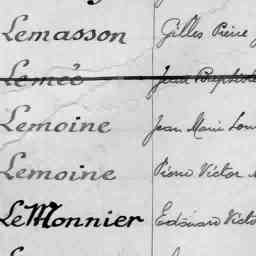 Lemasson Gilles Pierre
Lemée Jean Baptiste
Lemoine Jean Marie Lou
Lemoine Pierre Victor
LeMonnier Edouard Victo